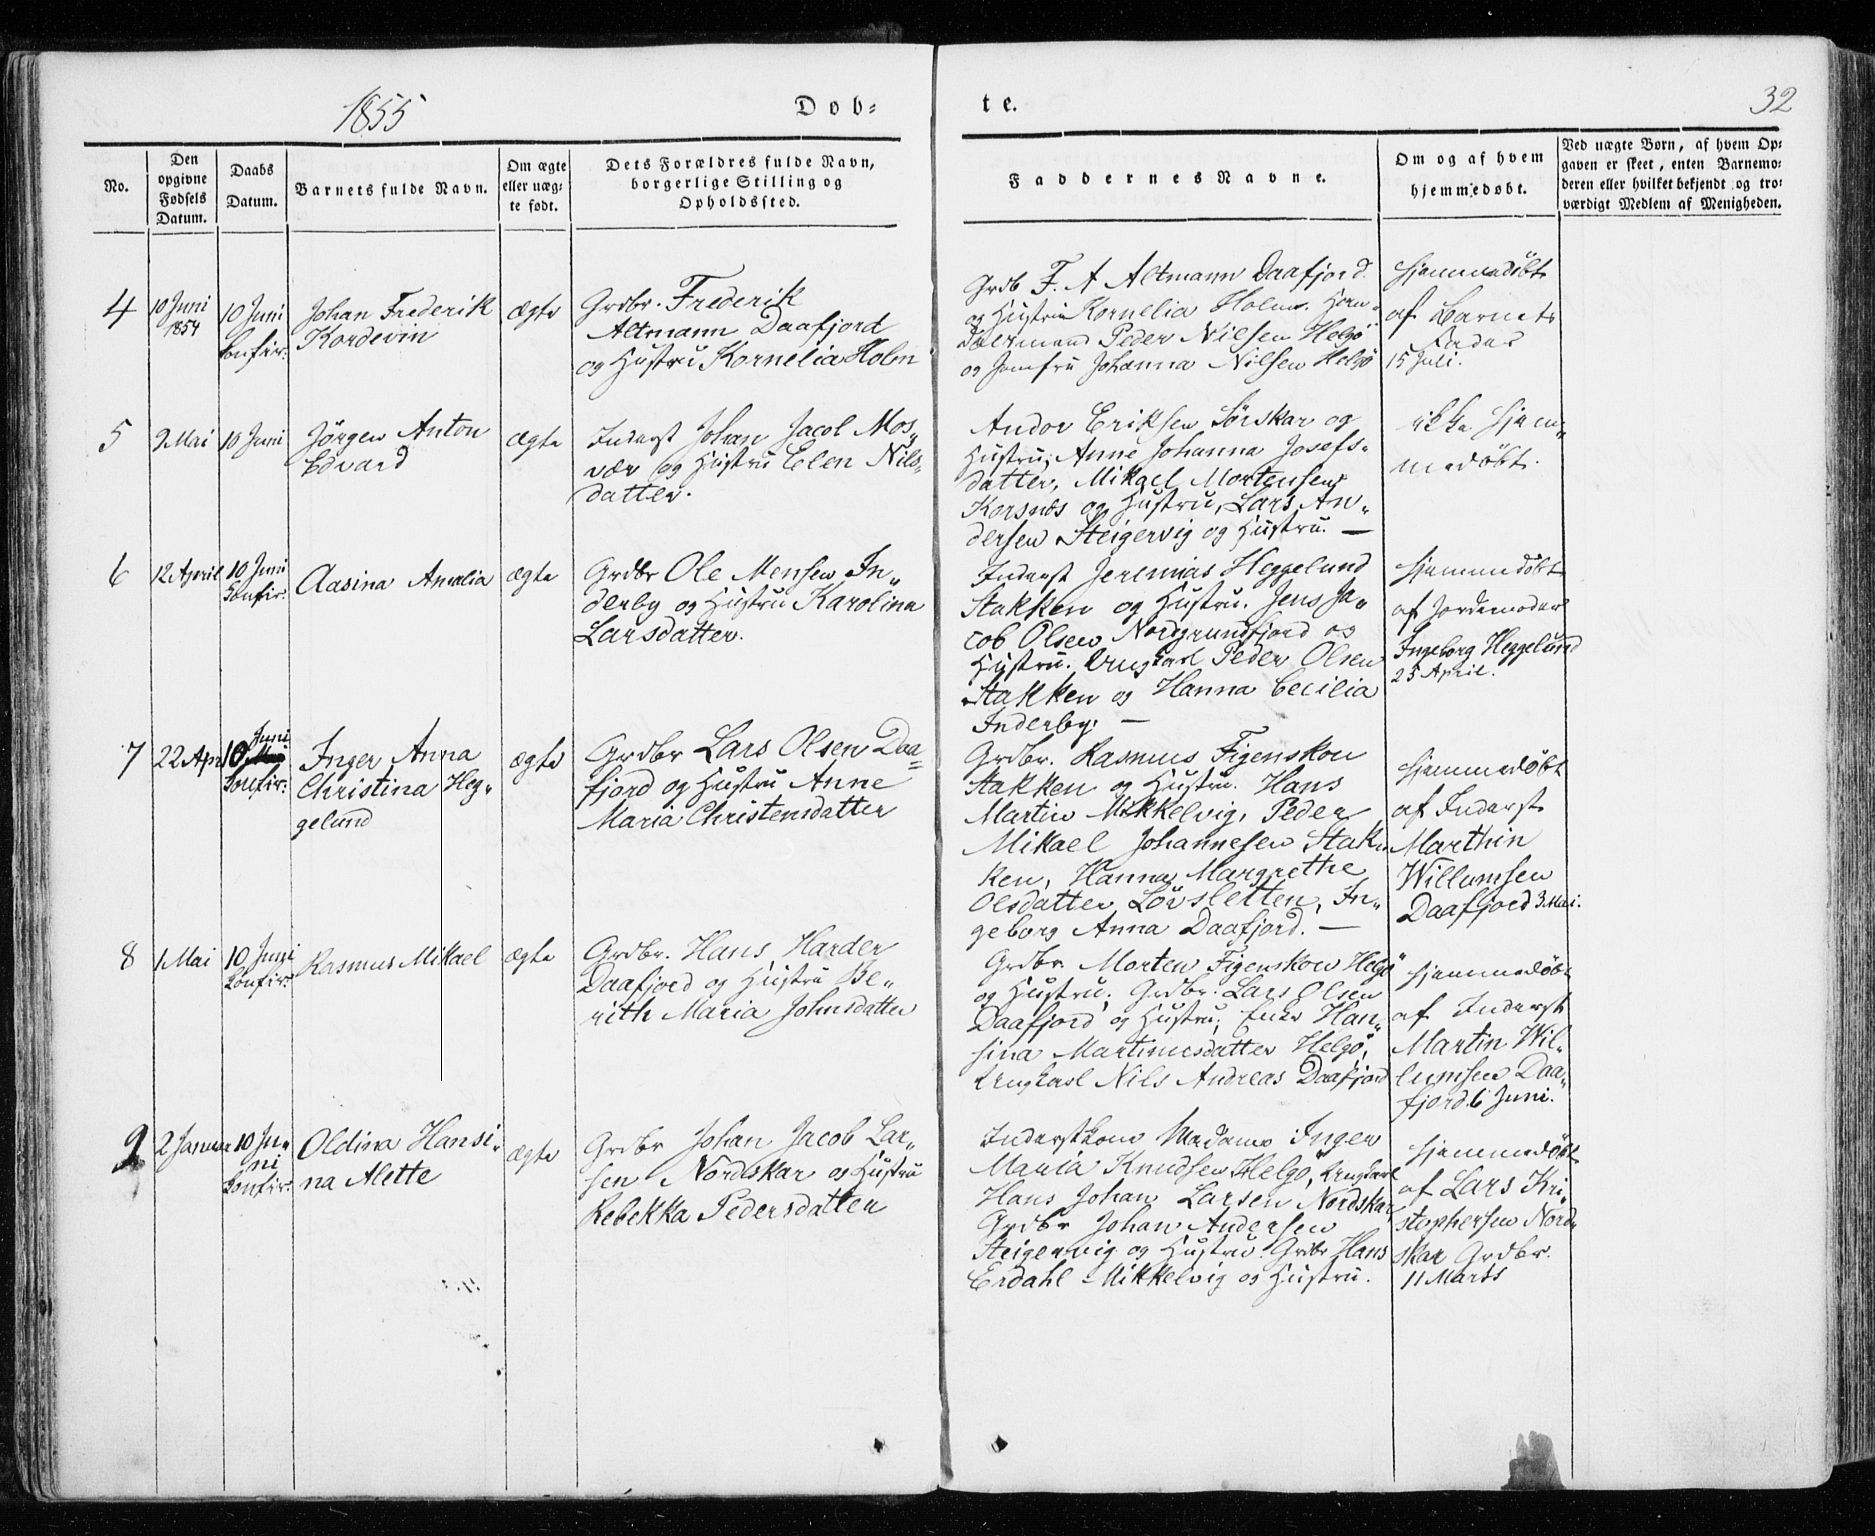 1855
Dob-
te.
32
No.
Den
opgivne
Fødsels
Datum.
Daabs
Datum.
Barnets fulde Navn.
Om ægte
eller uæg-
te født.
Dets Forældres fulde Navn,
borgerlige Stilling og
Opholdssted.
Faddernes Navne.
Om og af hvem
hjemmedøbt.
Ved uægte Børn, af hvem Op-
gaven er skeet, enten Barnemo-
deren eller hvilket bekjendt og tro-
værdigt Medlem af Menigheden.
4
10 Juni
1854
10 Juni
Confir:
Johan Frederik
Kordevin
ægte
Grdbr. Frederik
Altmann Daafjord
og Hustru Kornelia Holm
Grdb F. A Altmann Daafjord
og Hustru Kornelia Holm. Han-
delsmand Peder Nilsen Helgö
og Jomfru Johanna Nilsen Helgö
Hjemmedøbt
af Barnets
Fader
15 Juli.
5
2 Mai
10 Juni
Jörgen Anton
Edvard
ægte
Inderst Johan Jacob Mos-
vær og Hustru Elen Nils-
datter.
Andor Eriksen Sörskar og
Hustru; Anne Johanna Josefs-
datter, Mikael Mortensen
Korsnæs og Hustru, Lars An-
dersen Steigervig og Hustru. —
ikke hjem-
medøbt.
6
12 April
10 Juni
Confir:
Aasina Amalia
ægte
Grdbr Ole Monsen In-
derby og Hustru Karolina
Larsdatter.
Inderst Jeremias Heggelund
Stakken og Hustru. Jens Ja-
cob Olsen Nordgrundfjord og
Hustru. Ungkarl Peder Olsen
Stakken og Hanna Cecilia
Inderby. —
Hjemmedøbt
af Jordemoder
Ingeborg Heggelund
25 April.
7
22 Apr
Juni
10
Confir:
Inger Anna
Christina Heg-
gelund
ægte
Grdbr Lars Olsen Daa-
fjord og Hustru Anne
Maria Christensdatter
Grdbr. Rasmus Figenskou
Stakken og Hustru. Hans
Martin Mikkelvig, Peder
Mikael Johannesen Stak-
ken, Hanna Margrethe
Olsdatter Lövsletten, In-
geborg Anna Daafjord. —
Hjemmedøbt
af Inderst
Marthin
Willumsen
Daafjord 3 Mai.
8
1 Mai
10 Juni
Confir:
Rasmus Mikael
ægte
Grdbr. Hans Harder
Daafjord og Hustru Be-
rith Maria Johnsdatter
Grdbr Morten Figenskou Helgö
og Hustru; Grdbr. Lars Olsen
Daafjord og Hustru; Enke Han-
sina Martinusdatter Helgö,
Ungkarl Nils Andreas Daafjord
Hjemmedøbt
af Inderst
Martin Wil-
lumsen Daa-
fjord. 6 Juni.
9
2 Januar
10 Ju-
ni
Confir:
Oldina Hansi-
na Alette
ægte
Grdbr Johan Jacob Lar-
sen Nordskar og Hustru
Rebekka Pedersdatter
Inderstkone Madame Inger
Maria Knudsen Helgö, Ungkarl
Hans Johan Larsen Nordskar,
Grdbr Johan Andersen
Steigervig og Hustru. Grdbr Hans
Erdahl Mikkelvig og Hustru.
Hjemmedøbt
af Lars Kri-
stophersen Nord-
skar Grdbr.
11 Marts